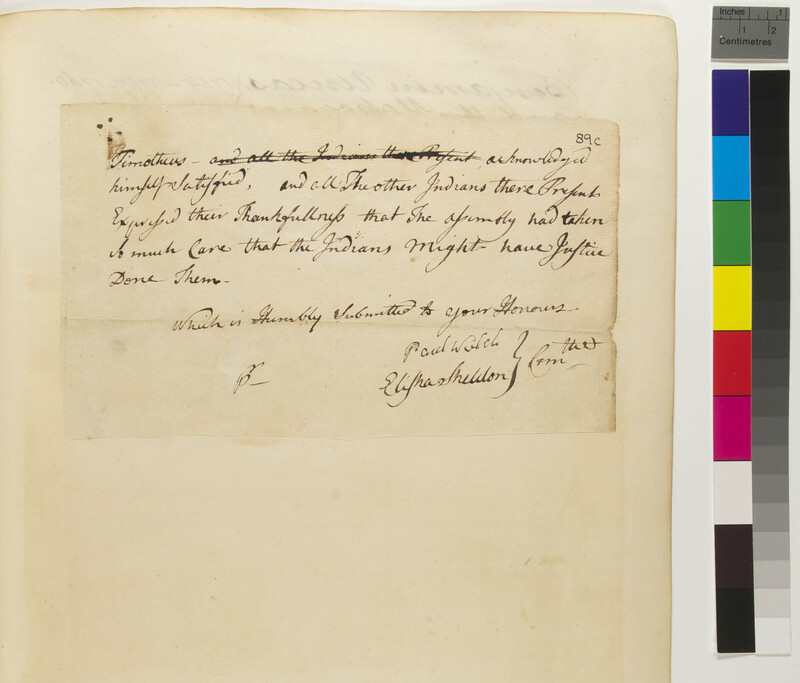 89c
Timotheus - and all the Indians there Present acknowledged
himself Satisfied, and all The other Indians there Present
Expressed their Thankfullness that The assembly had taken
So much Care that the Indians might have Justice
Done Them -
Which is Humbly Submitted to your Honours -
Paul Welch
Elisha Sheldon } Comttee
pr
Inches 1
1 2
Centimetres